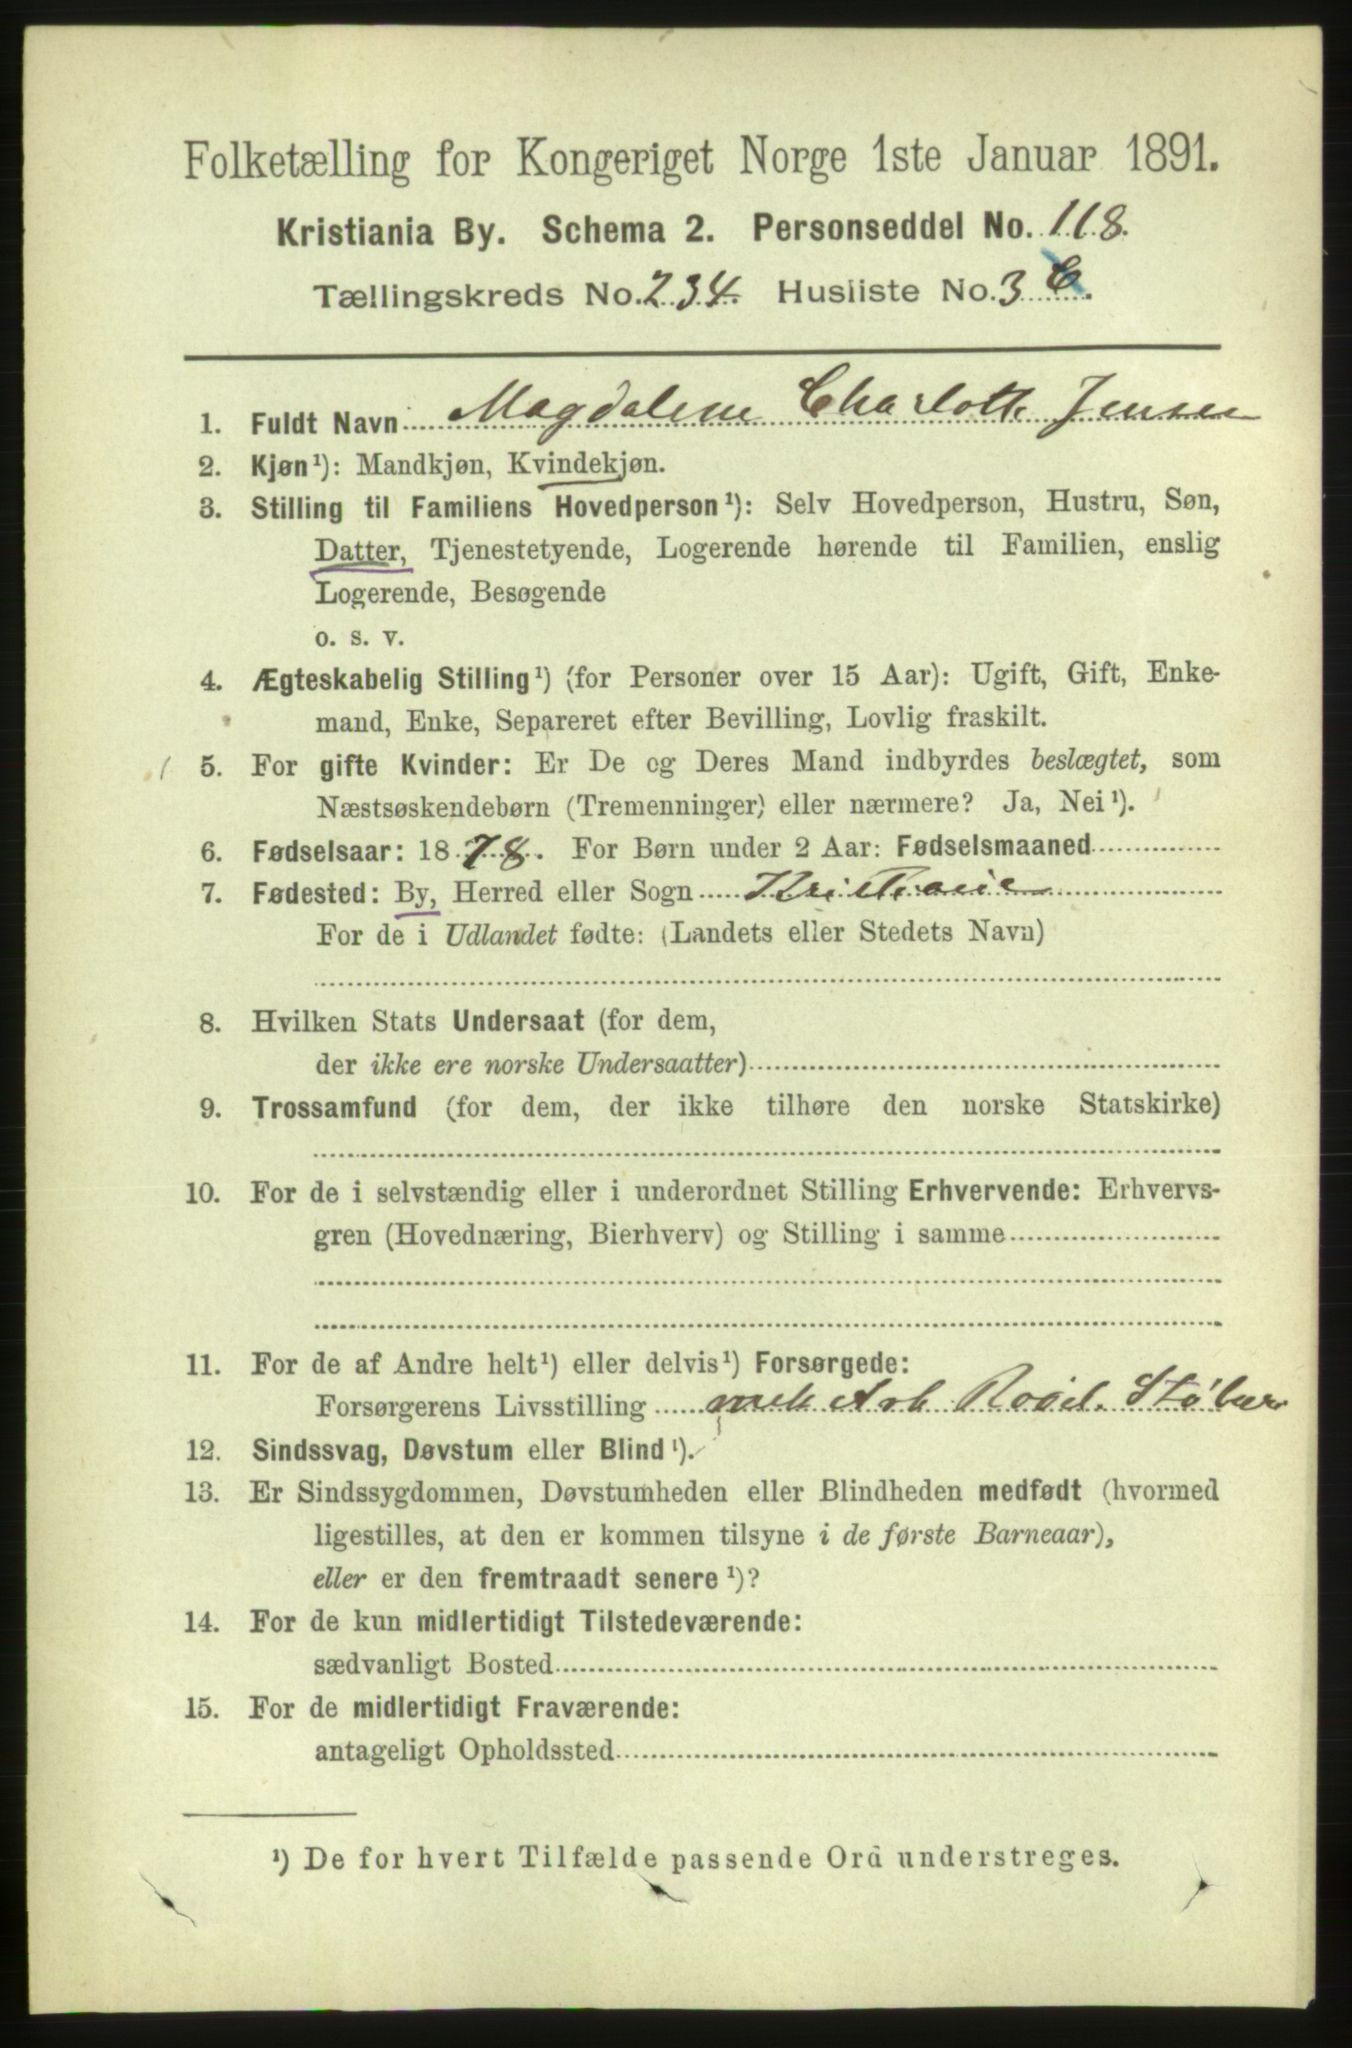 Folketælling for Kongeriget Norge 1ste Januar 1891.
Kristiania By. Schema 2. Personseddel No. 118.
Tællingskreds No. 234. Husliste No. 3 C.
1. Fuldt Navn Magdalene Charlotte Jensen
2. Kjøn¹): Mandkjøn, Kvindekjøn.
3. Stilling til Familiens Hovedperson¹): Selv Hovedperson, Hustru, Søn,
Datter, Tjenestetyende, Logerende hørende til Familien, enslig
Logerende, Besøgende
o. s. v.
4. Ægteskabelig Stilling¹) (for Personer over 15 Aar): Ugift, Gift, Enke-
mand, Enke, Separeret efter Bevilling, Lovlig fraskilt.
5. For gifte Kvinder: Er De og Deres Mand indbyrdes beslægtet, som
Næstsøskendebørn (Tremenninger) eller nærmere? Ja, Nei¹).
6. Fødselsaar: 1878. For Børn under 2 Aar: Fødselsmaaned
7. Fødested: By, Herred eller Sogn Kristiania
For de i Udlandet fødte: (Landets eller Stedets Navn)
8. Hvilken Stats Undersaat (for dem,
der ikke ere norske Undersaatter)
9. Trossamfund (for dem, der ikke tilhøre den norske Statskirke)
10. For de i selvstændig eller i underordnet Stilling Erhvervende: Erhvervs-
gren (Hovednæring, Bierhverv) og Stilling i samme
11. For de af Andre helt¹) eller delvis¹) Forsørgede:
Forsørgerens Livsstilling mek Arb
12. Sindssvag, Døvstum eller Blind¹).
13. Er Sindssygdommen, Døvstumheden eller Blindheden medfødt (hvormed
ligestilles, at den er kommen tilsyne i de første Barneaar),
eller er den fremtraadt senere¹)?
14. For de kun midlertidigt Tilstedeværende:
sædvanligt Bosted
15. For de midlertidigt Fraværende:
antageligt Opholdssted
¹) De for hvert Tilfælde passende Ord understreges.